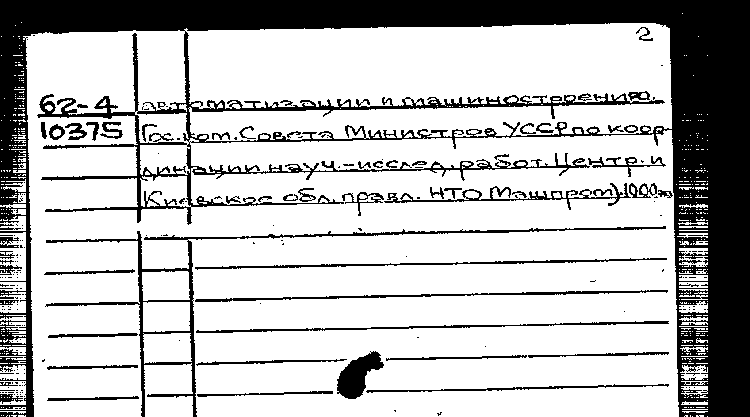 2
62-4 автоматизации и машиностроению.
10375 Гос. ком. Совета Министров УССР по коор-
динации науч.-исслед. работ. Центр. и
Киевское обл. правл. НТО Машпром). 1000 экз